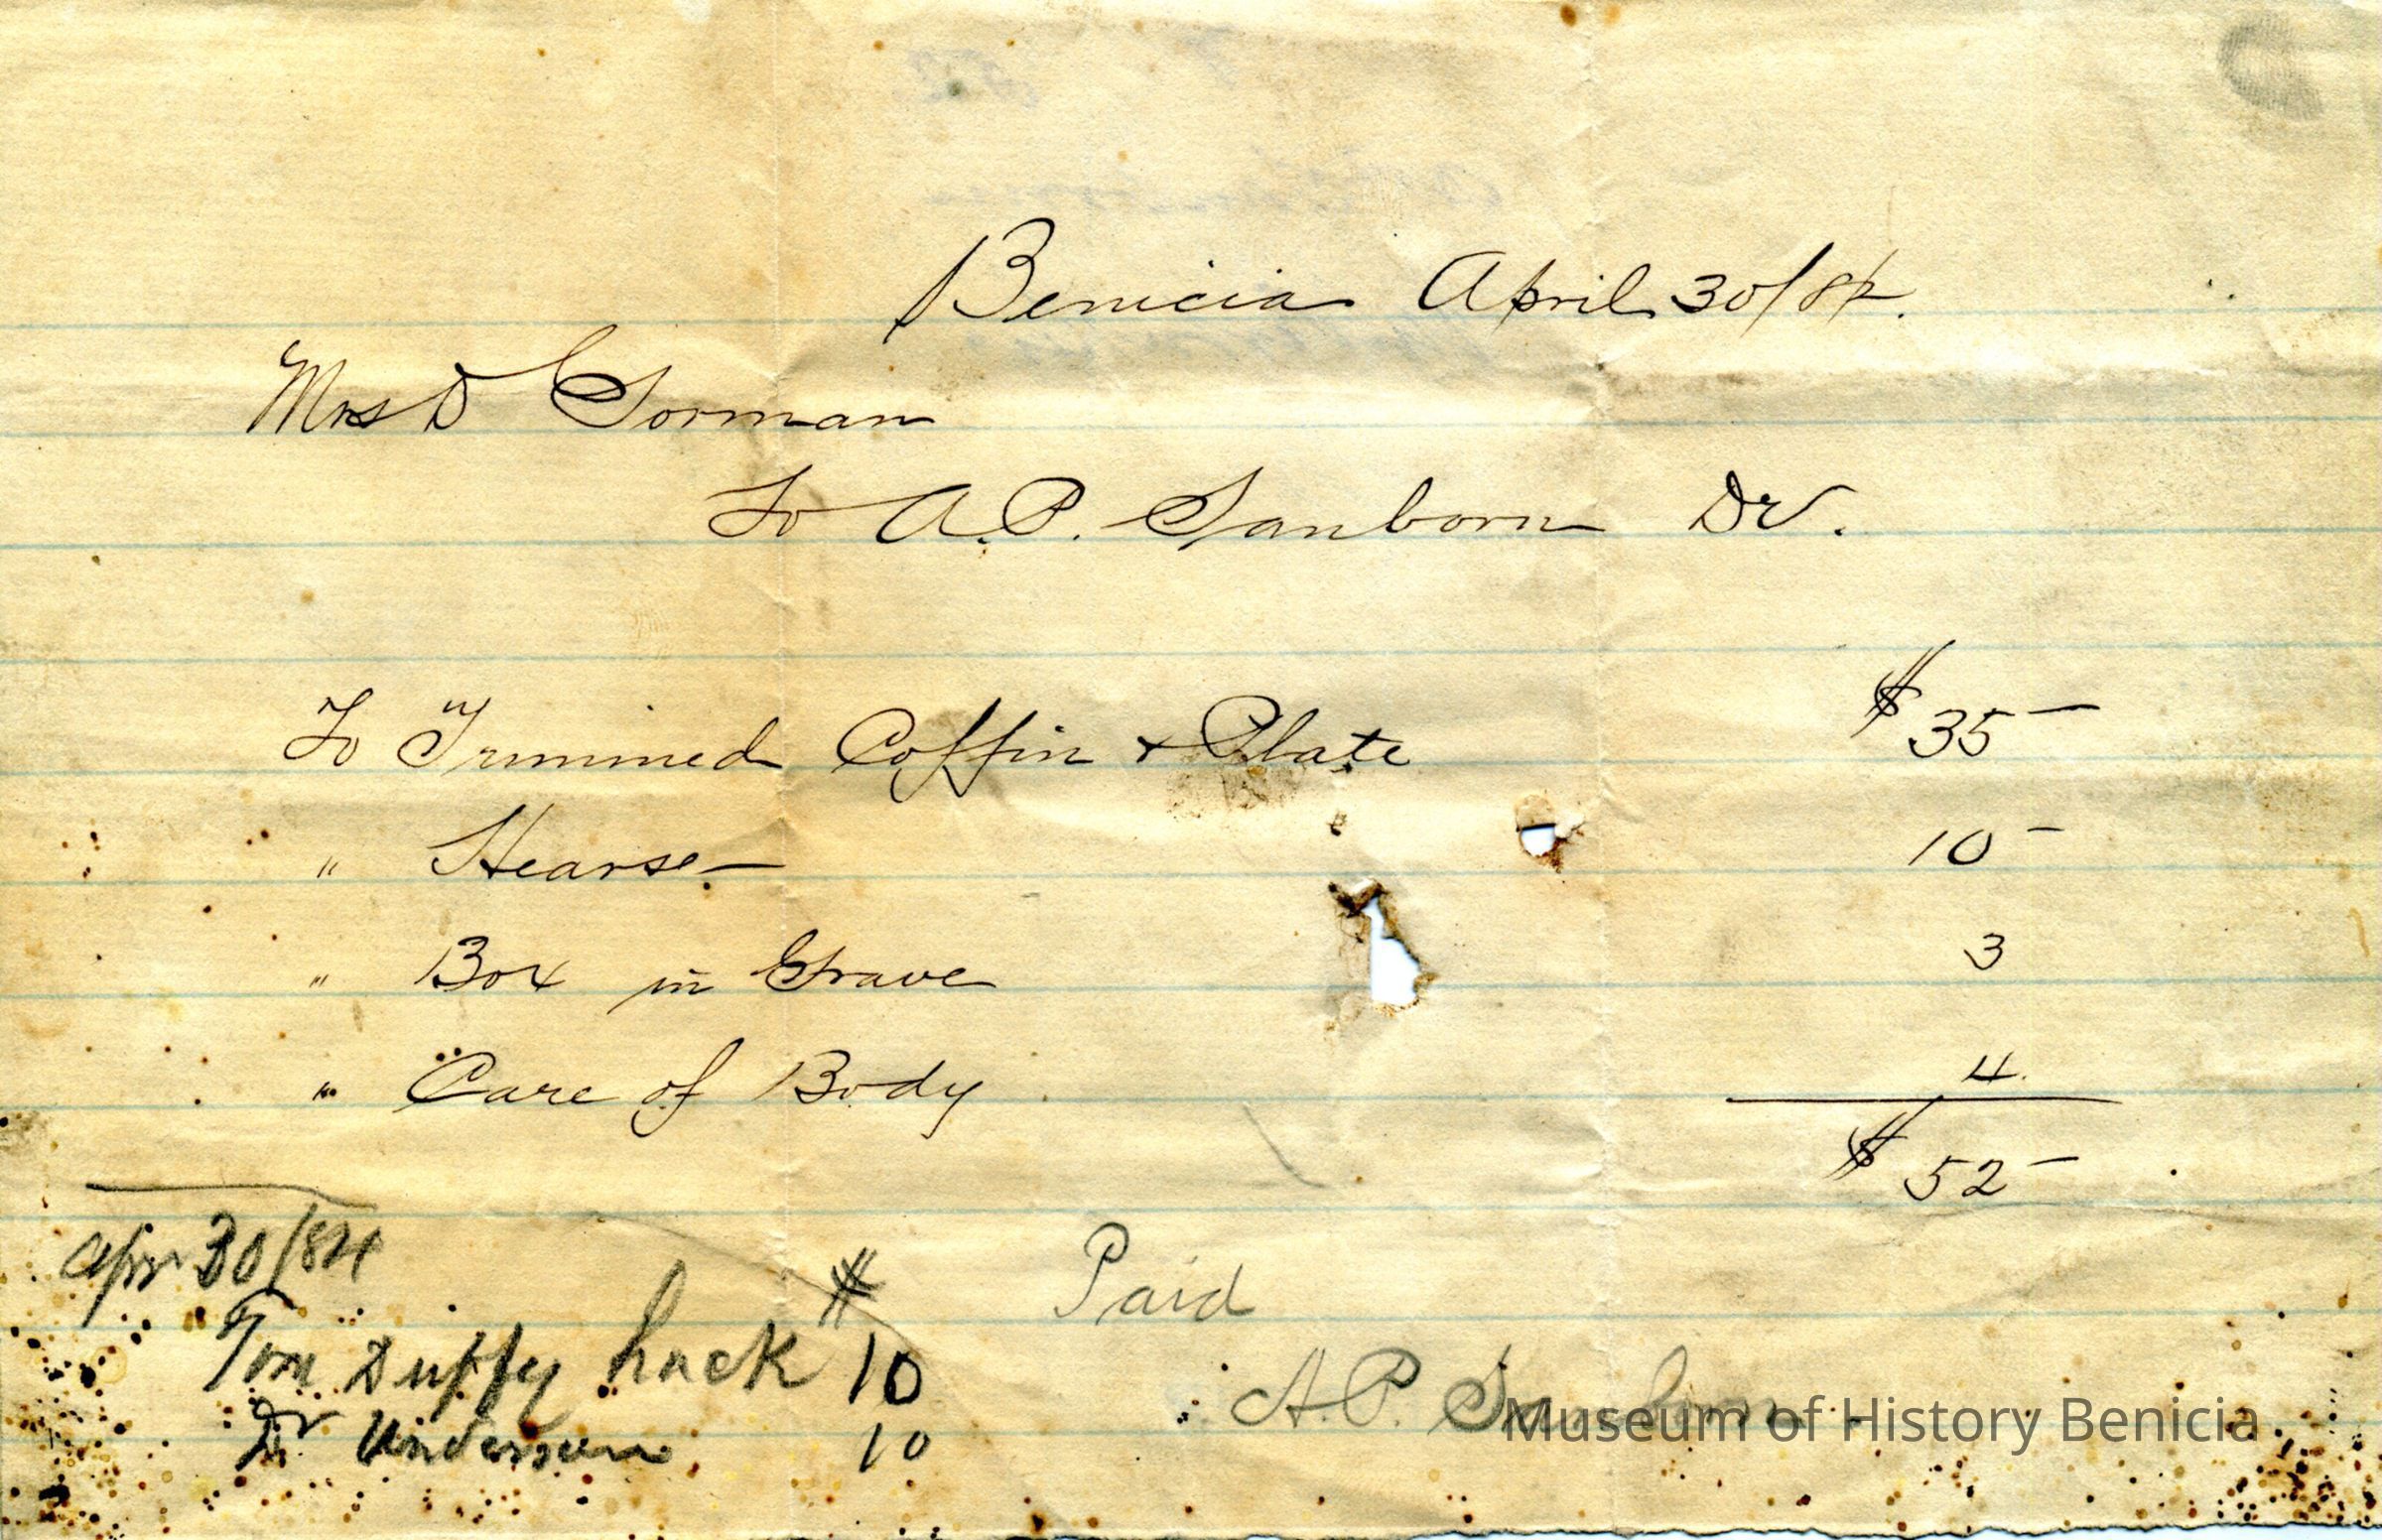 Benicia April 30/84.
Mrs D Gorman
To A.P. Sanborn Dr.
To Trimmed Coffin & Plate $35-
" Hearse 10-
" Box in Grave 3
" Care of Body 4.
$52-
Apr 30/84
Tom Duffy hack $10
Dr Anderson 10
Paid
A.P. Sanborn
Museum of History Benicia